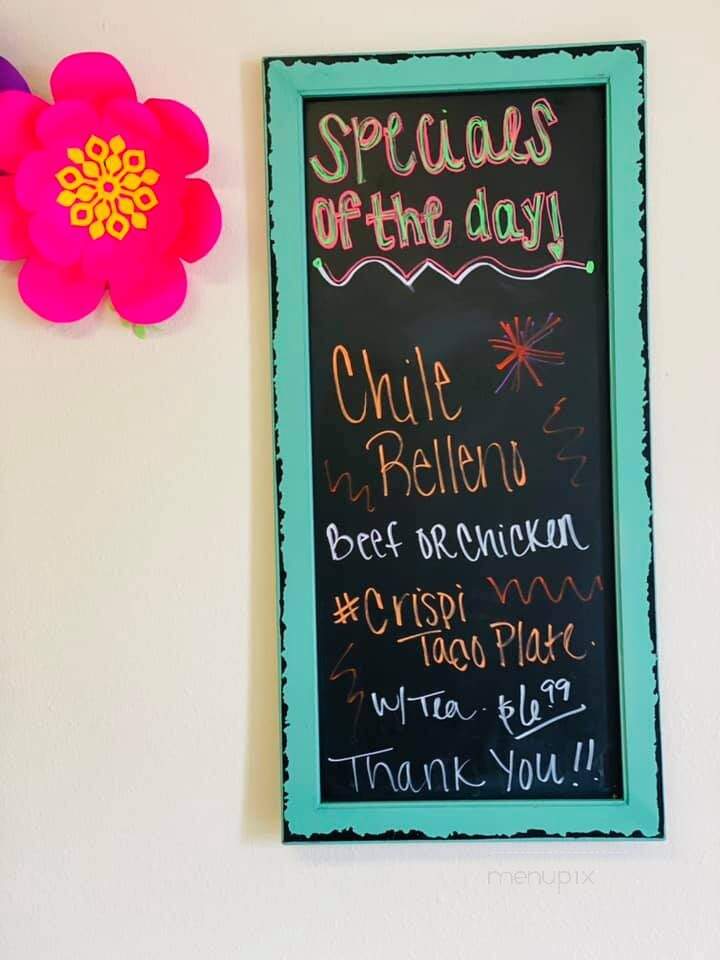 Specials
of the day!
Chile
Relleno
Beef OR Chicken
#Crispi
Taco Plate.
W/ Tea. $6.99
Thank You!!
menupix